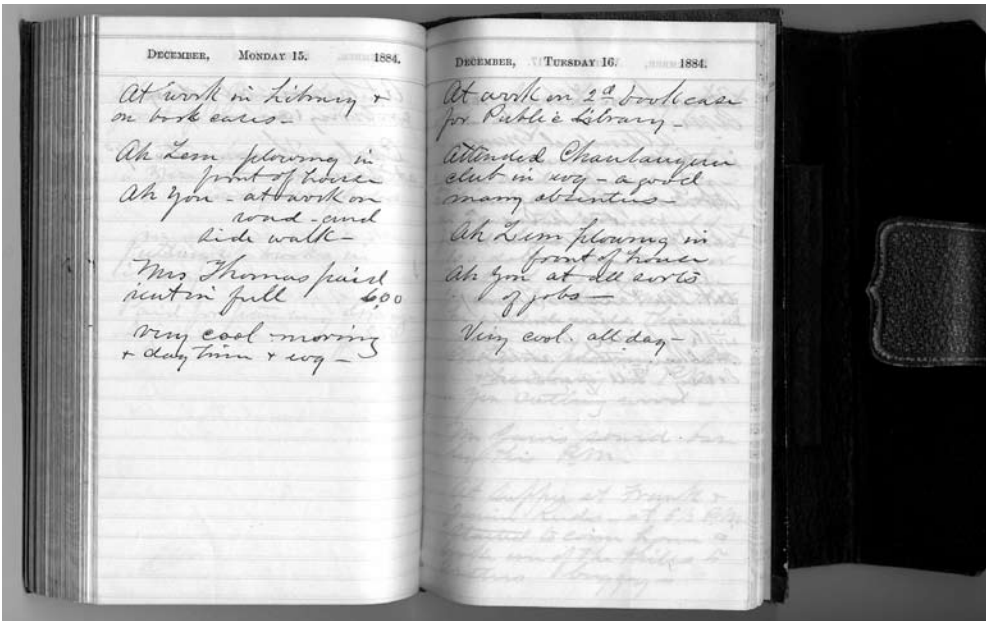 DECEMBER, MONDAY 15. 1884.
At work in Library +
on book cases -
Ah Lem plowing in
front of house
Ah You - at work on
road - and
side walk -
Mrs Thomas paid
rent in full 6,00
very cool morning
+ day time + evg -
DECEMBER, TUESDAY 16. 1884.
At work on 2d book case
for Public Library -
Attended Chautauquin
club in evg - a good
many absentees -
Ah Lem plowing in
front of house
Ah You at all sorts
of jobs -
Very cool. all day -